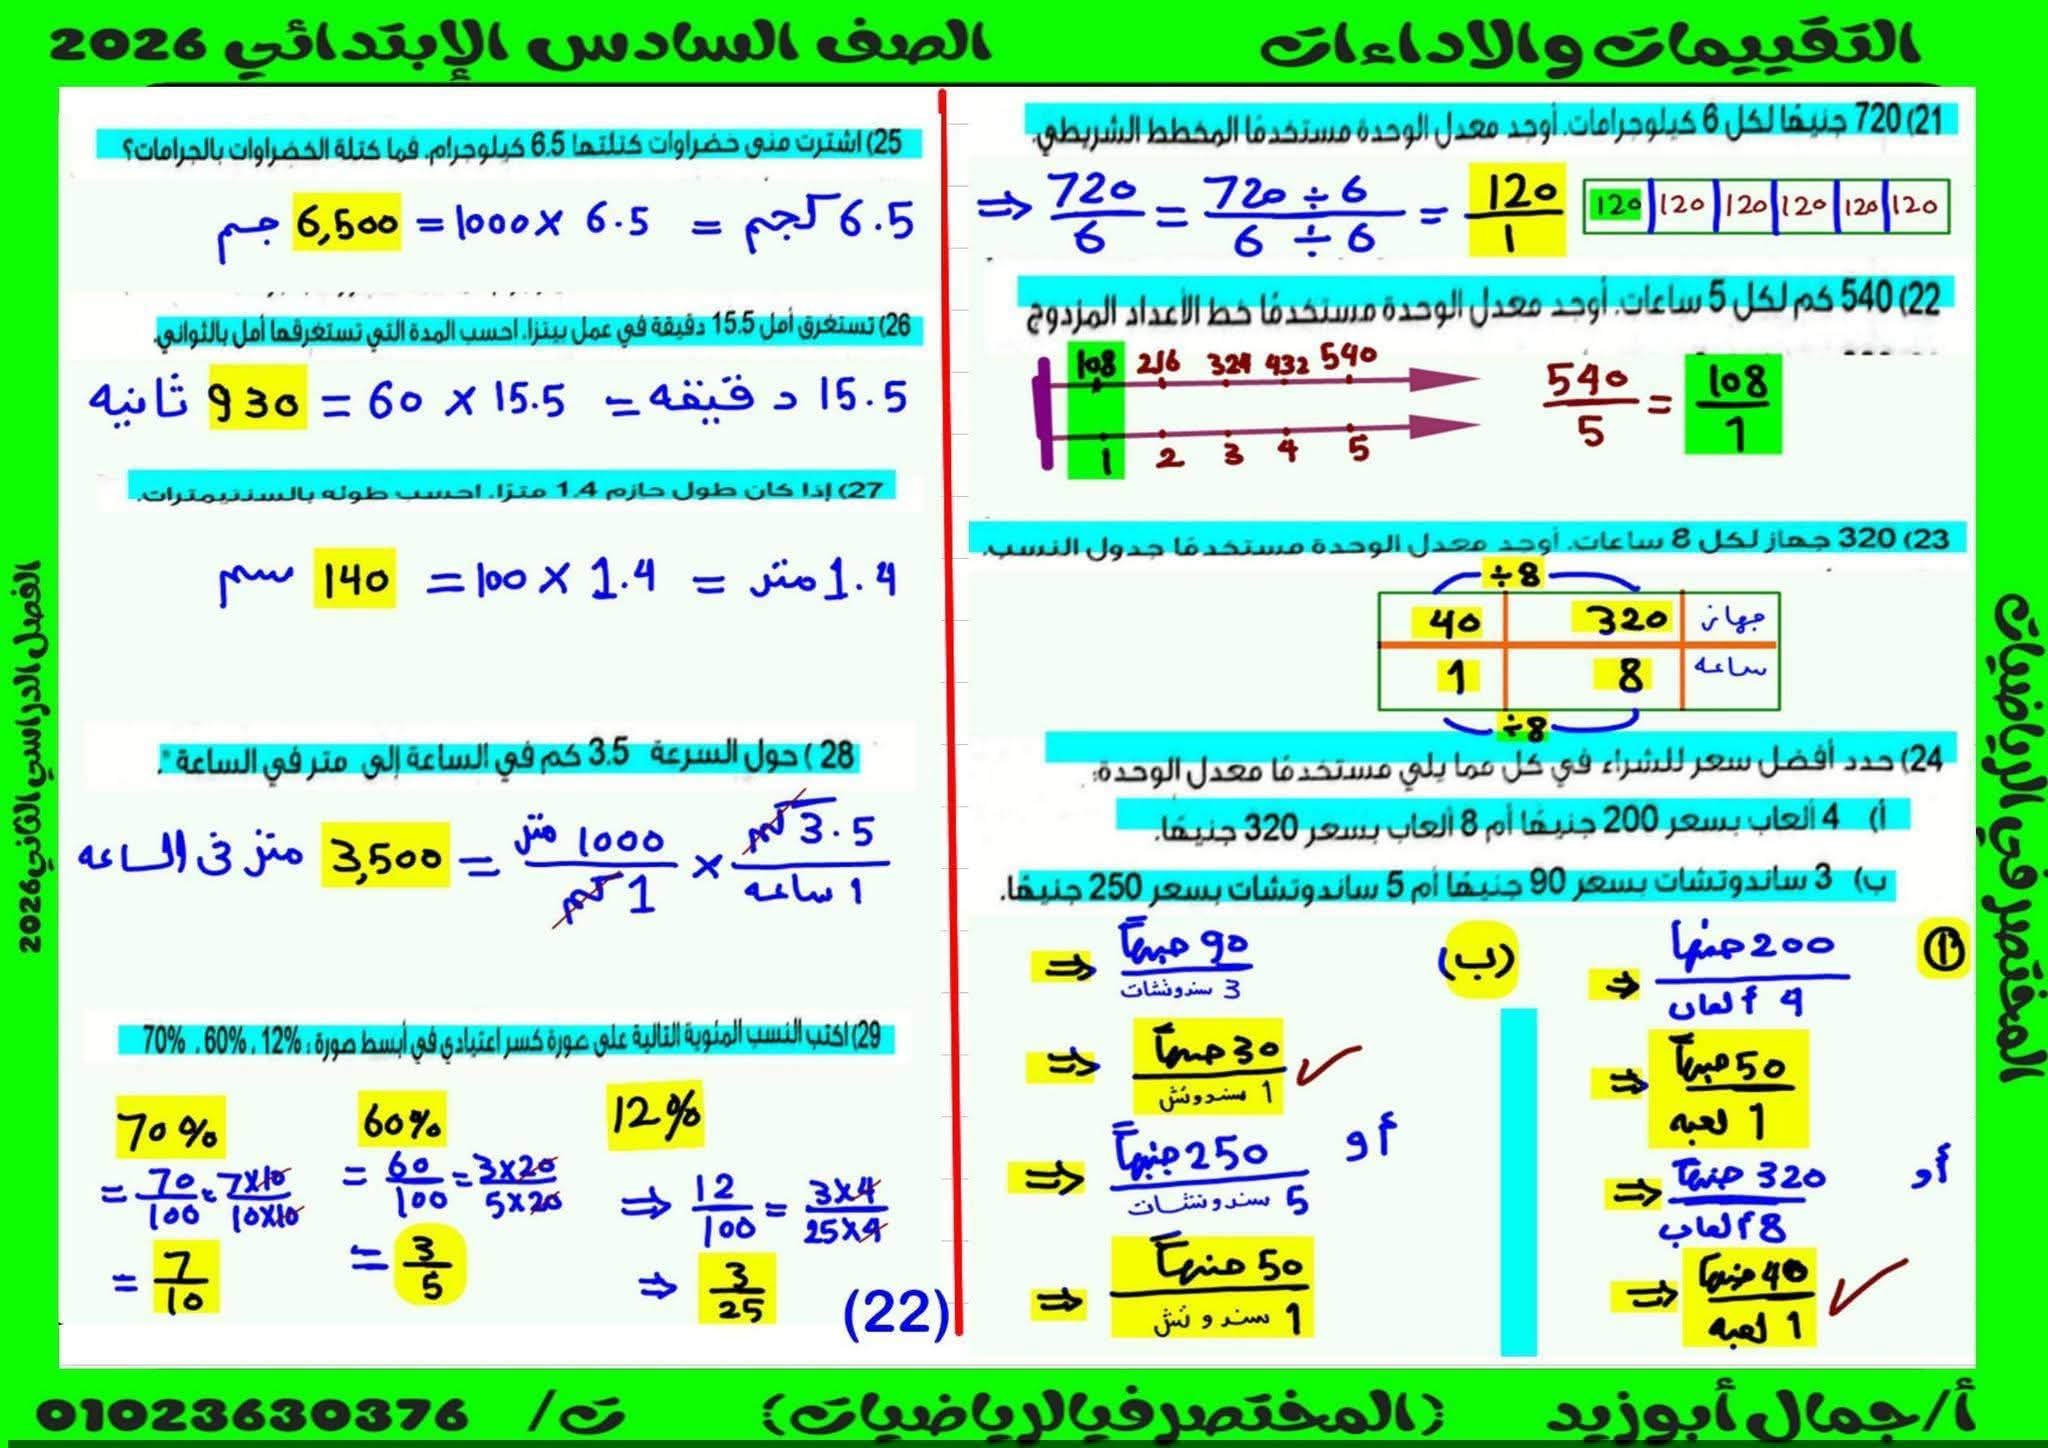 التقييمات والاداءات
الصف السادس الإبتدائي 2026
21) 720 جنيهًا لكل 6 كيلوجرامات. أوجد معدل الوحدة مستخدمًا المخطط الشريطي.
⇒ 720/6 = 720 ÷ 6 / 6 ÷ 6 = 120/1
120 | 120 | 120 | 120 | 120 | 120
22) 540 كم لكل 5 ساعات. أوجد معدل الوحدة مستخدمًا خط الأعداد المزدوج
108 216 324 432 540
1 2 3 4 5
540/5 = 108/1
23) 320 جهاز لكل 8 ساعات. أوجد معدل الوحدة مستخدمًا جدول النسب.
÷8
جهاز 320 40
ساعه 8 1
÷8
24) حدد أفضل سعر للشراء في كل مما يلي مستخدمًا معدل الوحدة:
أ) 4 ألعاب بسعر 200 جنيهًا أم 8 ألعاب بسعر 320 جنيهًا.
ب) 3 ساندوتشات بسعر 90 جنيهًا أم 5 ساندوتشات بسعر 250 جنيهًا.
⇒ 200 جنيهاً / 4 ألعاب
⇒ 50 جنيهاً / 1 لعبه
أو
⇒ 320 جنيهاً / 8 ألعاب
⇒ 40 جنيهاً / 1 لعبه ✓
(ب)
⇒ 90 جنيهاً / 3 سندوتشات
⇒ 30 جنيهاً / 1 سندوتش ✓
أو
⇒ 250 جنيهاً / 5 سندوتشات
⇒ 50 جنيهاً / 1 سندوتش
25) اشترت منى خضراوات كتلتها 6.5 كيلوجرام. فما كتلة الخضراوات بالجرامات؟
6.5 كجم = 6.5 × 1000 = 6,500 جم
26) تستغرق أمل 15.5 دقيقة في عمل بيتزا. احسب المدة التي تستغرقها أمل بالثواني.
15.5 دقيقه = 15.5 × 60 = 930 ثانيه
27) إذا كان طول حازم 1.4 مترًا. احسب طوله بالسنتيمترات.
1.4 متر = 1.4 × 100 = 140 سم
28 ) حول السرعة 3.5 كم في الساعة إلى متر في الساعة .
3.5 كم / 1 ساعه × 1000 متر / 1 كم = 3,500 متر فى الساعه
29) اكتب النسب المئوية التالية على صورة كسر اعتيادي في أبسط صورة : 12% ، 60% ، 70%
12%
⇒ 12/100 = 3×4 / 25×4
⇒ 3/25
60%
= 60/100 = 3×20 / 5×20
= 3/5
70%
= 70/100 = 7×10 / 10×10
= 7/10
(22)
الفصل الدراسي الثاني 2026
المختصر في الرياضيات
أ/جمال أبوزيد
{المختصر في الرياضيات}
ت/ 01023630376